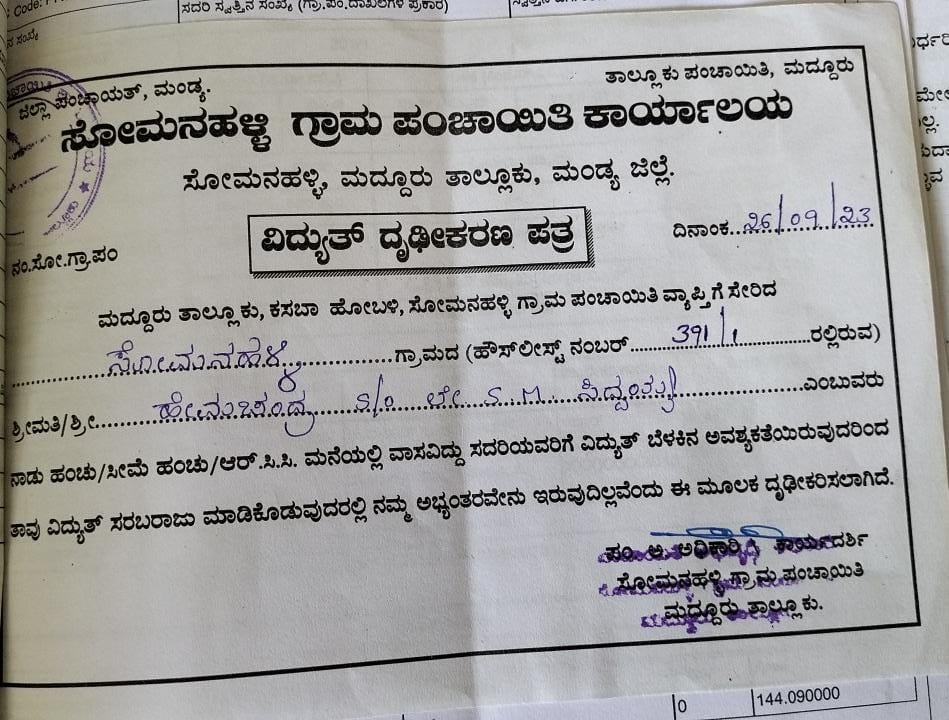 Code:
ಸದರಿ ಸ್ವತ್ತಿನ ಸಂಖ್ಯೆ (ಗ್ರಾ.ಪಂ.ದಾಖಲೆಗಳ ಪ್ರಕಾರ)
ಜಿಲ್ಲಾ ಪಂಚಾಯತ್, ಮಂಡ್ಯ. ತಾಲ್ಲೂಕು ಪಂಚಾಯಿತಿ, ಮದ್ದೂರು
ಸೋಮನಹಳ್ಳಿ ಗ್ರಾಮ ಪಂಚಾಯಿತಿ ಕಾರ್ಯಾಲಯ
ಸೋಮನಹಳ್ಳಿ, ಮದ್ದೂರು ತಾಲ್ಲೂಕು, ಮಂಡ್ಯ ಜಿಲ್ಲೆ.
ನಂ.ಸೋ.ಗ್ರಾ.ಪಂ ವಿದ್ಯುತ್ ದೃಢೀಕರಣ ಪತ್ರ ದಿನಾಂಕ..26/09/23
ಮದ್ದೂರು ತಾಲ್ಲೂಕು, ಕಸಬಾ ಹೋಬಳಿ, ಸೋಮನಹಳ್ಳಿ ಗ್ರಾಮ ಪಂಚಾಯಿತಿ ವ್ಯಾಪ್ತಿಗೆ ಸೇರಿದ
ಸೋಮನಹಳ್ಳಿ ಗ್ರಾಮದ (ಹೌಸ್‌ಲೀಸ್ಟ್ ನಂಬರ್ 391/1 ರಲ್ಲಿರುವ)
ಶ್ರೀಮತಿ/ಶ್ರೀ ಹೇಮಚಂದ್ರ S/o ಲೇ S.M. ಸಿದ್ದಯ್ಯ ಎಂಬುವರು
ನಾಡು ಹಂಚು/ಸೀಮೆ ಹಂಚು/ಆರ್.ಸಿ.ಸಿ. ಮನೆಯಲ್ಲಿ ವಾಸವಿದ್ದು ಸದರಿಯವರಿಗೆ ವಿದ್ಯುತ್ ಬೆಳಕಿನ ಅವಶ್ಯಕತೆಯಿರುವುದರಿಂದ
ತಾವು ವಿದ್ಯುತ್ ಸರಬರಾಜು ಮಾಡಿಕೊಡುವುದರಲ್ಲಿ ನಮ್ಮ ಅಭ್ಯಂತರವೇನು ಇರುವುದಿಲ್ಲವೆಂದು ಈ ಮೂಲಕ ದೃಢೀಕರಿಸಲಾಗಿದೆ.
ಪಂ. ಅ. ಅಧಿಕಾರಿ / ಕಾರ್ಯದರ್ಶಿ
ಸೋಮನಹಳ್ಳಿ ಗ್ರಾಮ ಪಂಚಾಯಿತಿ
ಮದ್ದೂರು ತಾಲ್ಲೂಕು.
0 144.090000